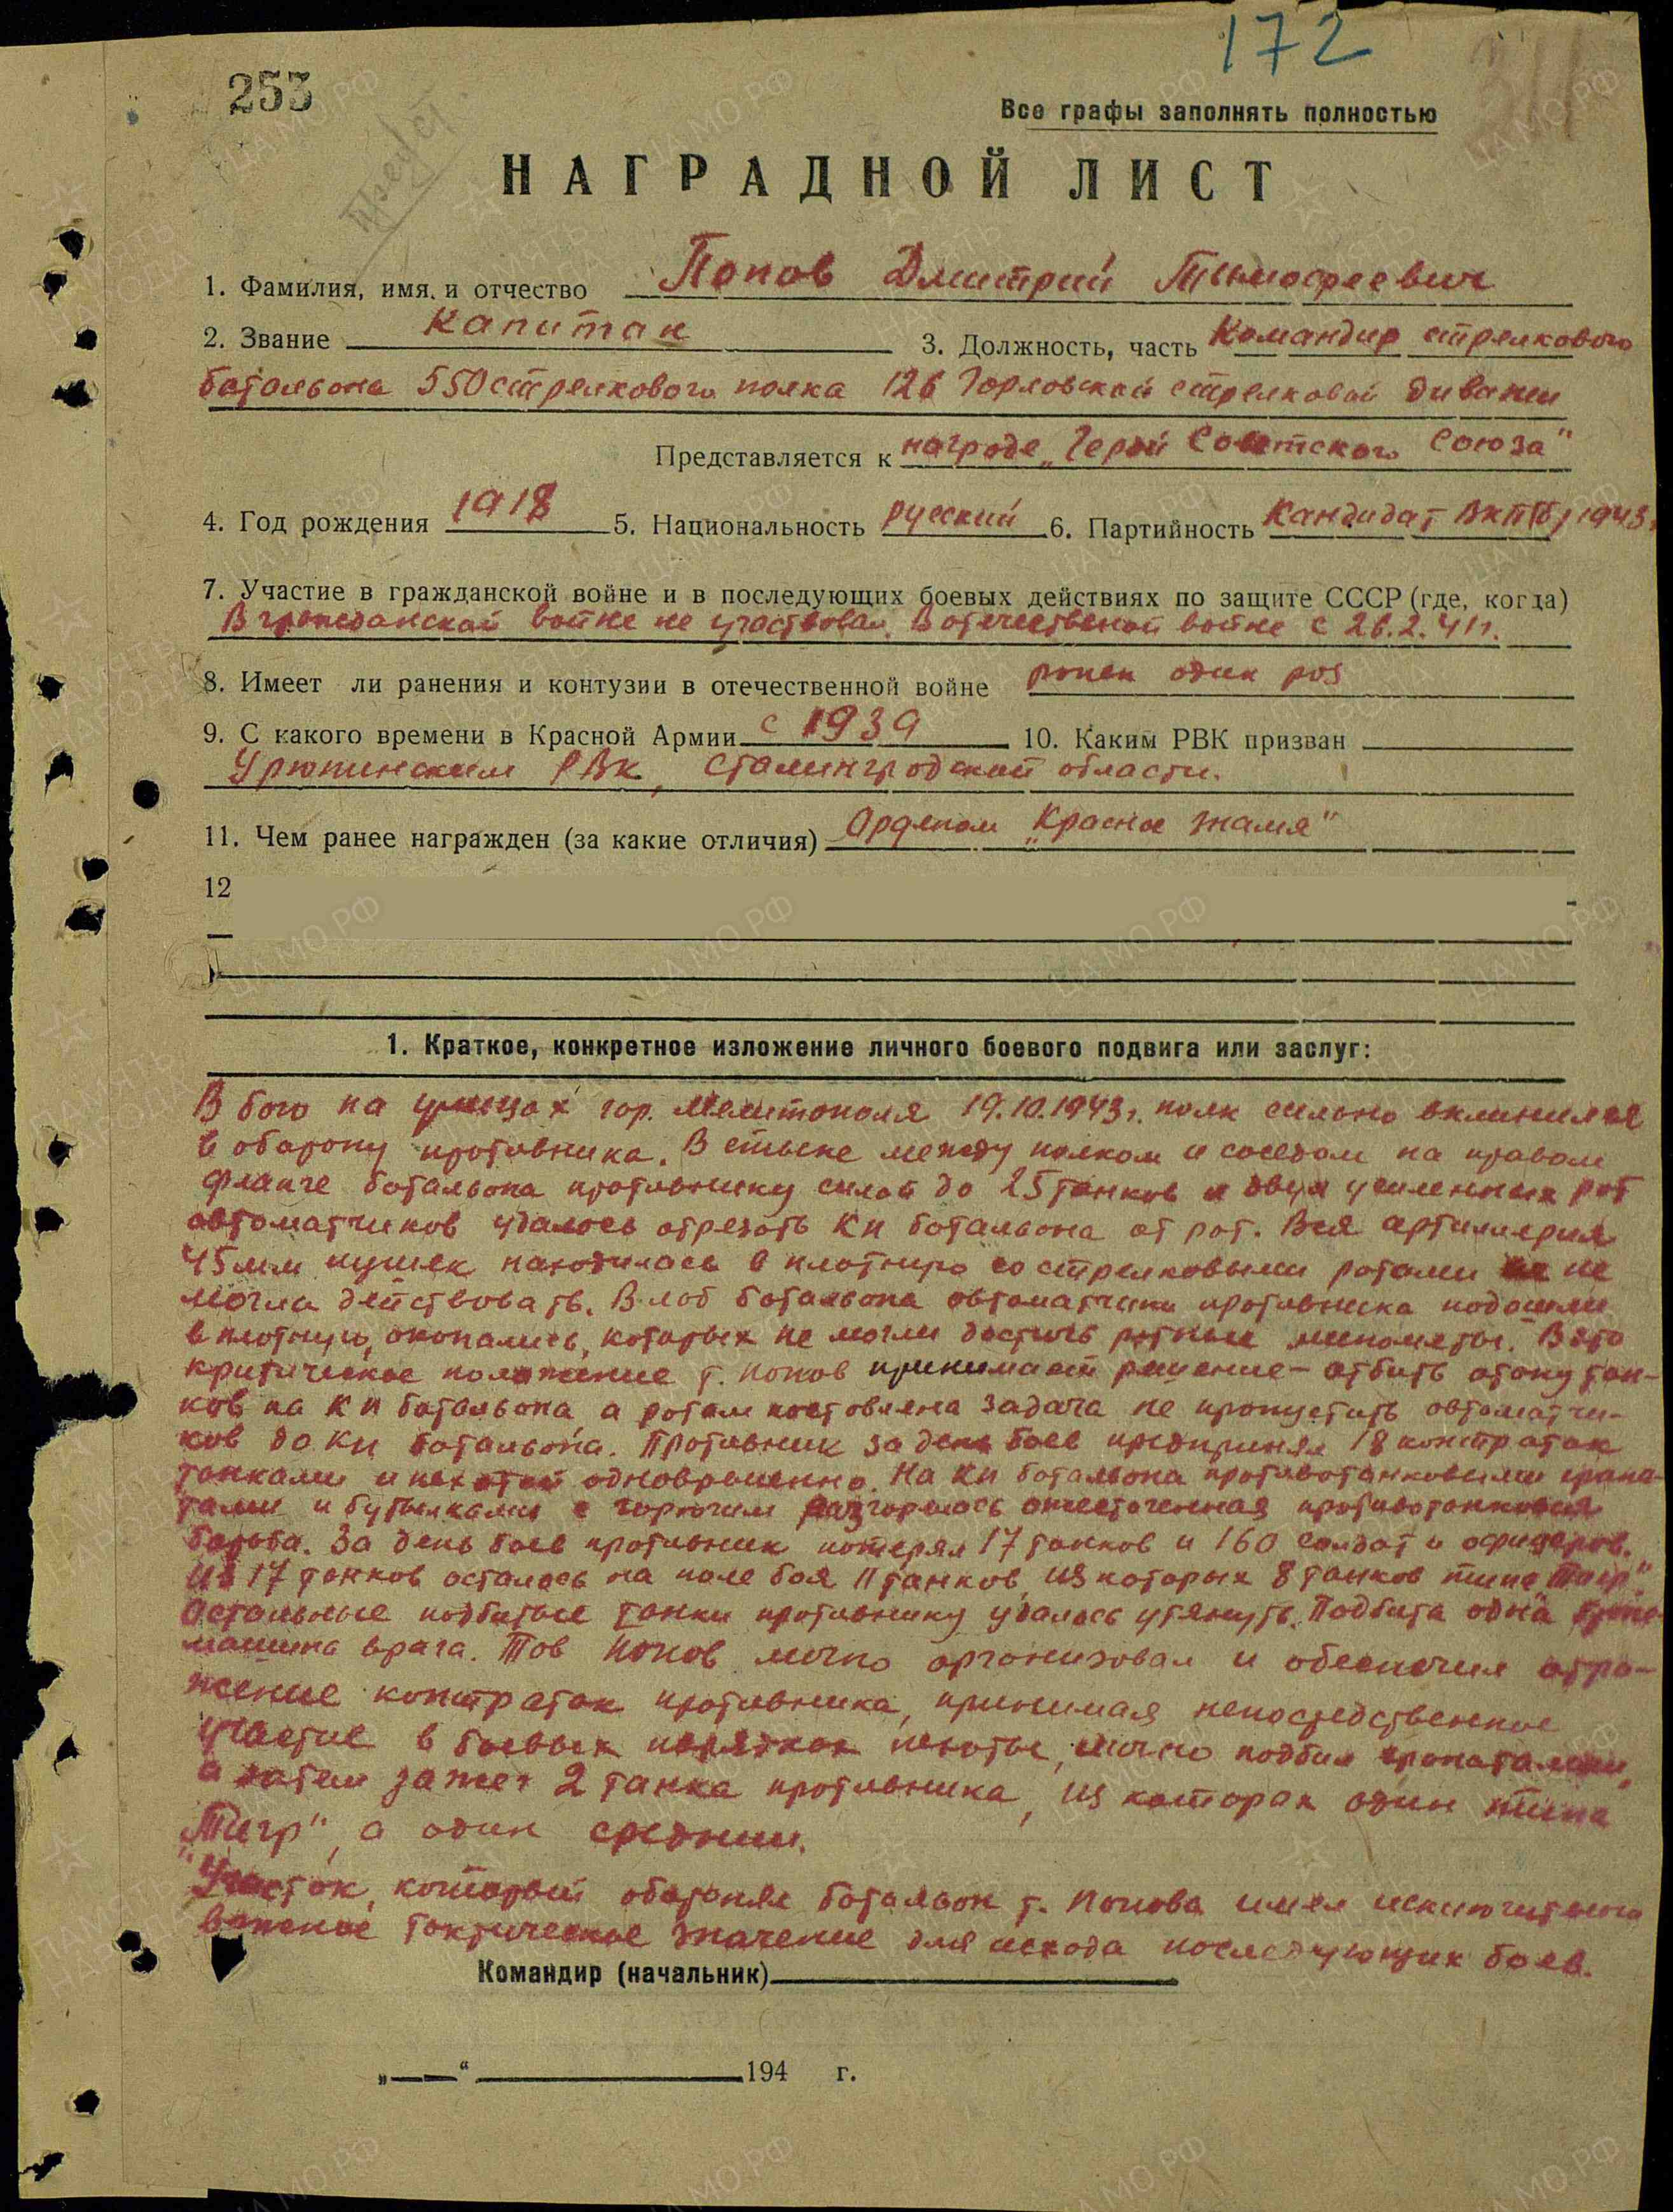 172
253
Все графы заполнять полностью
НАГРАДНОЙ ЛИСТ
1. Фамилия, имя и отчество Попов Дмитрий Тимофеевич
2. Звание Капитан 3. Должность, часть Командир стрелкового
батальона 550 стрелкового полка 126 Горловской стрелковой дивизии
Представляется к награде „Герой Советского Союза"
4. Год рождения 1918 5. Национальность русский 6. Партийность Кандидат ВКП(б) 1943г
7. Участие в гражданской войне и в последующих боевых действиях по защите СССР (где, когда)
В гражданской войне не участвовал. В отечественой войне с 26.2.41г.
8. Имеет ли ранения и контузии в отечественной войне ранен один раз
9. С какого времени в Красной Армии с 1939 10. Каким РВК призван
Урюпинским РВК, Сталинградской области.
11. Чем ранее награжден (за какие отличия) Орденом „Красное знамя"
12
1. Краткое, конкретное изложение личного боевого подвига или заслуг:
В бою на улицах гор. Мелитополя 19.10.1943г. полк сильно вклинился
в оборону противника. В стыке между полком и соседом на правом
фланге батальона противнику силой до 25 танков и двух усиленных рот
автоматчиков удалось отрезать КП батальона от рот. Вся артиллерия
45мм пушек находилась в плотную со стрелковыми ротами не
могла действовать. В лоб батальона автоматчики противника подошли
в плотную, окопались, которых не могли достичь ротные минометы. В это
критическое положение т. Попов принимает решение – отбить атаку тан-
ков на КП батальона, а ротам поставлена задача не пропустить автоматчи-
ков до КП батальона. Противник за день боев предпринял 18 контратак
танками и пехотой одновременно. На КП батальона противотанковыми грана-
тами и бутылками с горючим разгорелась ожесточенная противотанковая
борьба. За день боев противник потерял 17 танков и 160 солдат и офицеров.
Из 17 танков осталось на поле боя 11 танков, из которых 8 танков типа „Тигр".
Остальные подбитые танки противнику удалось утянуть. Подбита одна броне-
машина врага. Тов Попов лично организовал и обеспечил отра-
жение контратак противника, принимая непосредственное
участие в боевых порядках пехоты, лично подбил гранатами,
а затем зажег 2 танка противника, из которых один типа
„Тигр", а один средний.
Участок, который оборонял батальон т. Попова имел исключительно
важное тактическое значение для исхода последующих боев.
Командир (начальник)
„ “ 194 г.